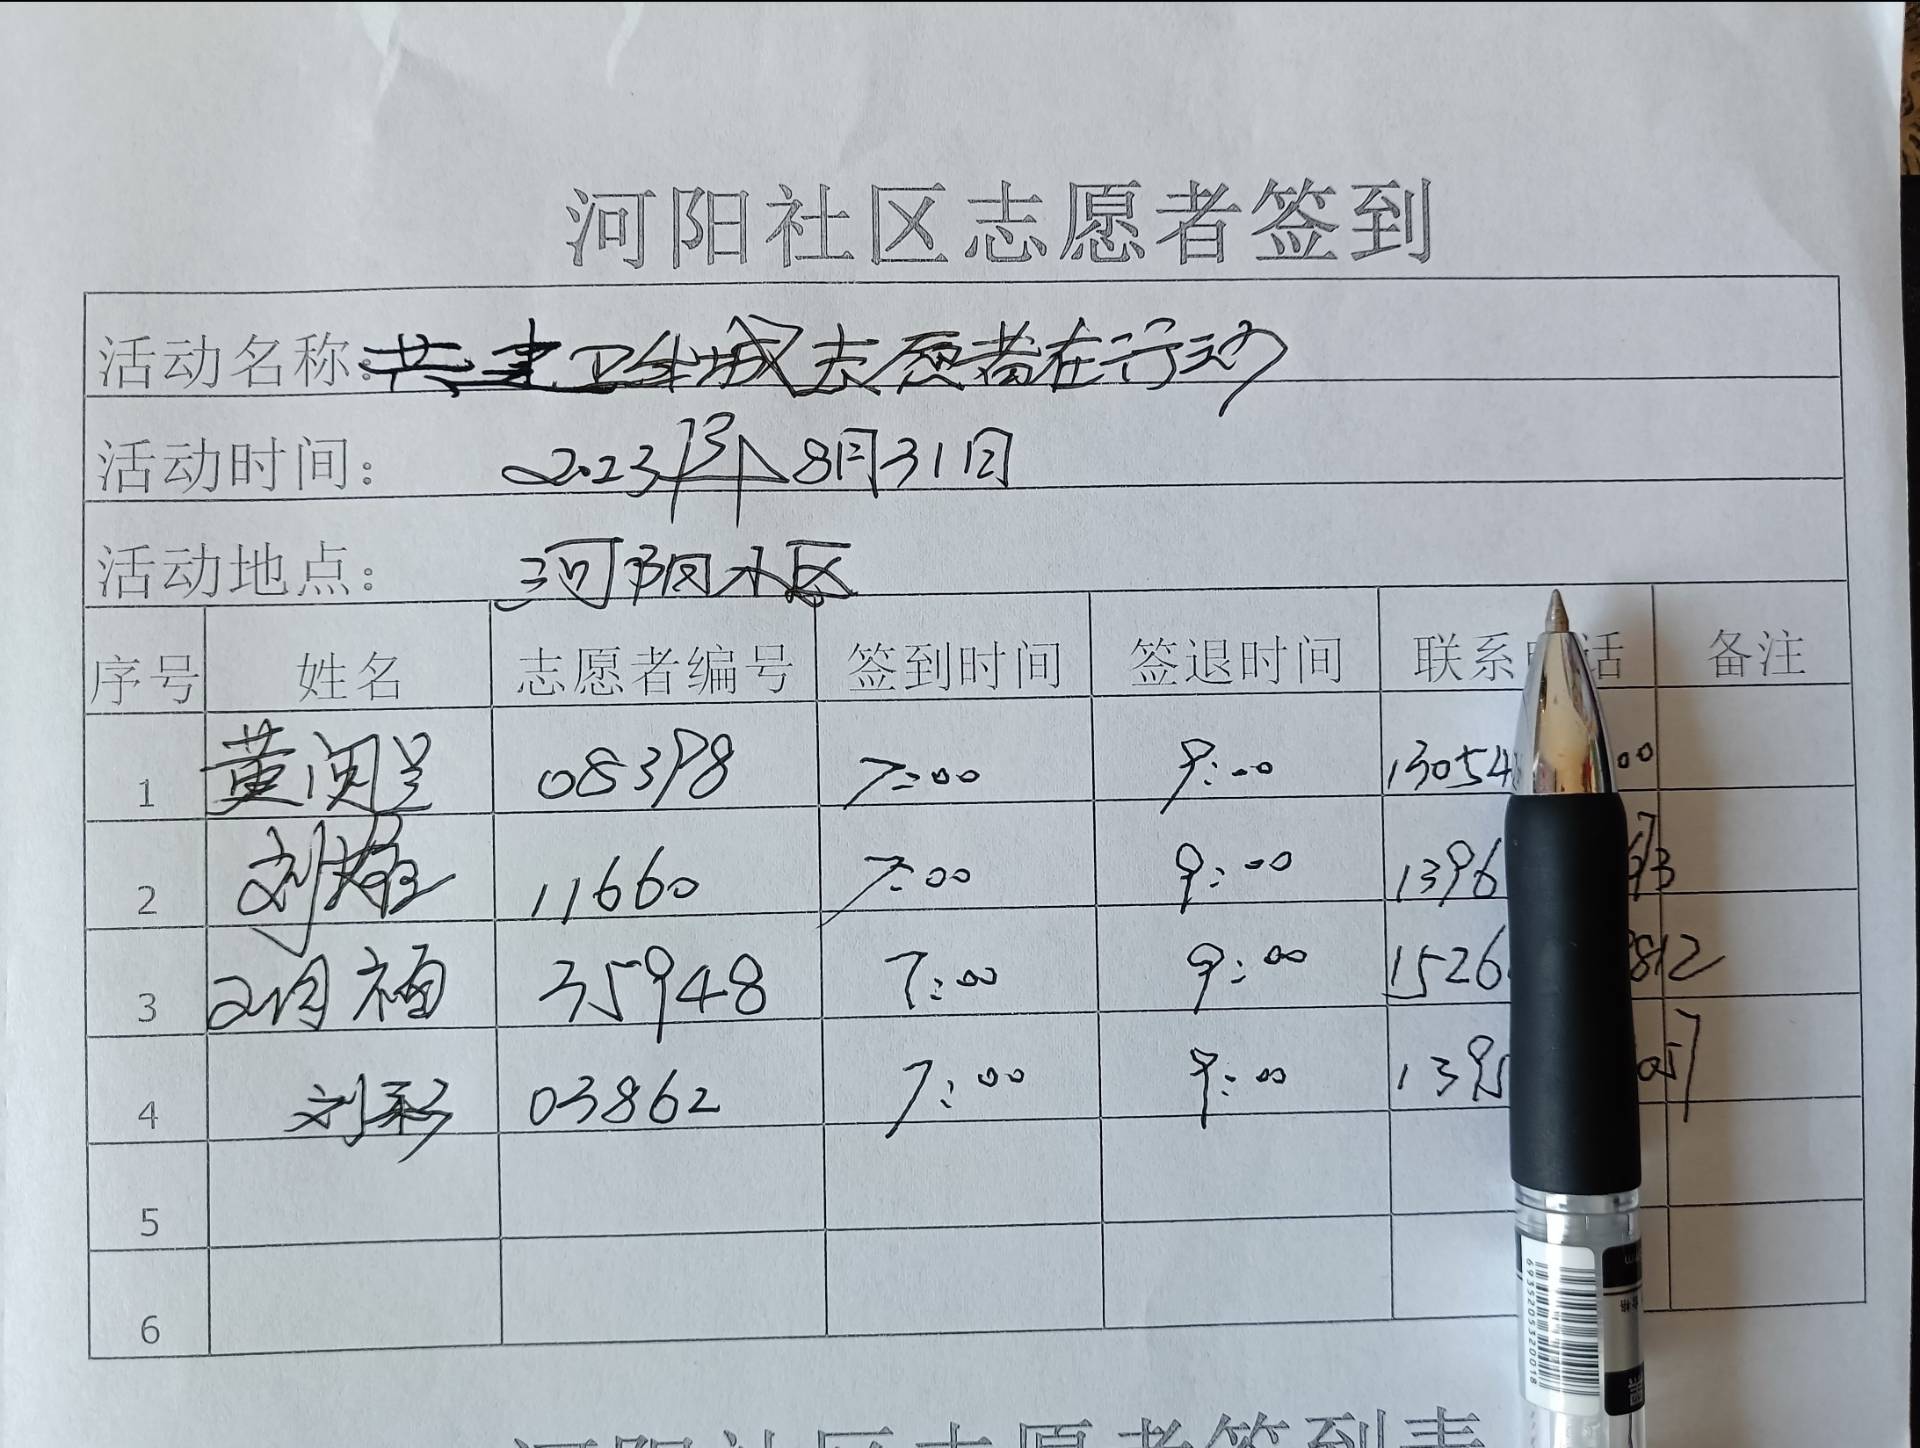 河阳社区志愿者签到
活动名称:共建卫生城志愿者在行动
活动时间: 2023年8月31日
活动地点: 河阳小区
序号 姓名 志愿者编号 签到时间 签退时间 联系 话 备注
1 黄 08398 7:00 9:00 13054 00
2 刘 11660 7:00 9:00 1396 93
3 福 35948 7:00 9:00 1526 812
4 刘 03862 7:00 9:00 139 057
5
6
6935205320018
河阳社区志愿者签到表